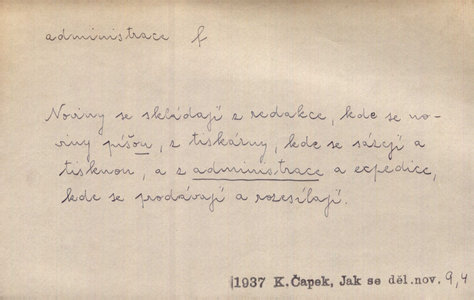 administrace f
Noviny se skládají z redakce, kde se no-
viny píšou, z tiskárny, kde se sázejí a
tisknou, a z administrace a expedice,
kde se prodávají a rozesílají.
1937 K.Čapek, Jak se děl.nov. 9,4